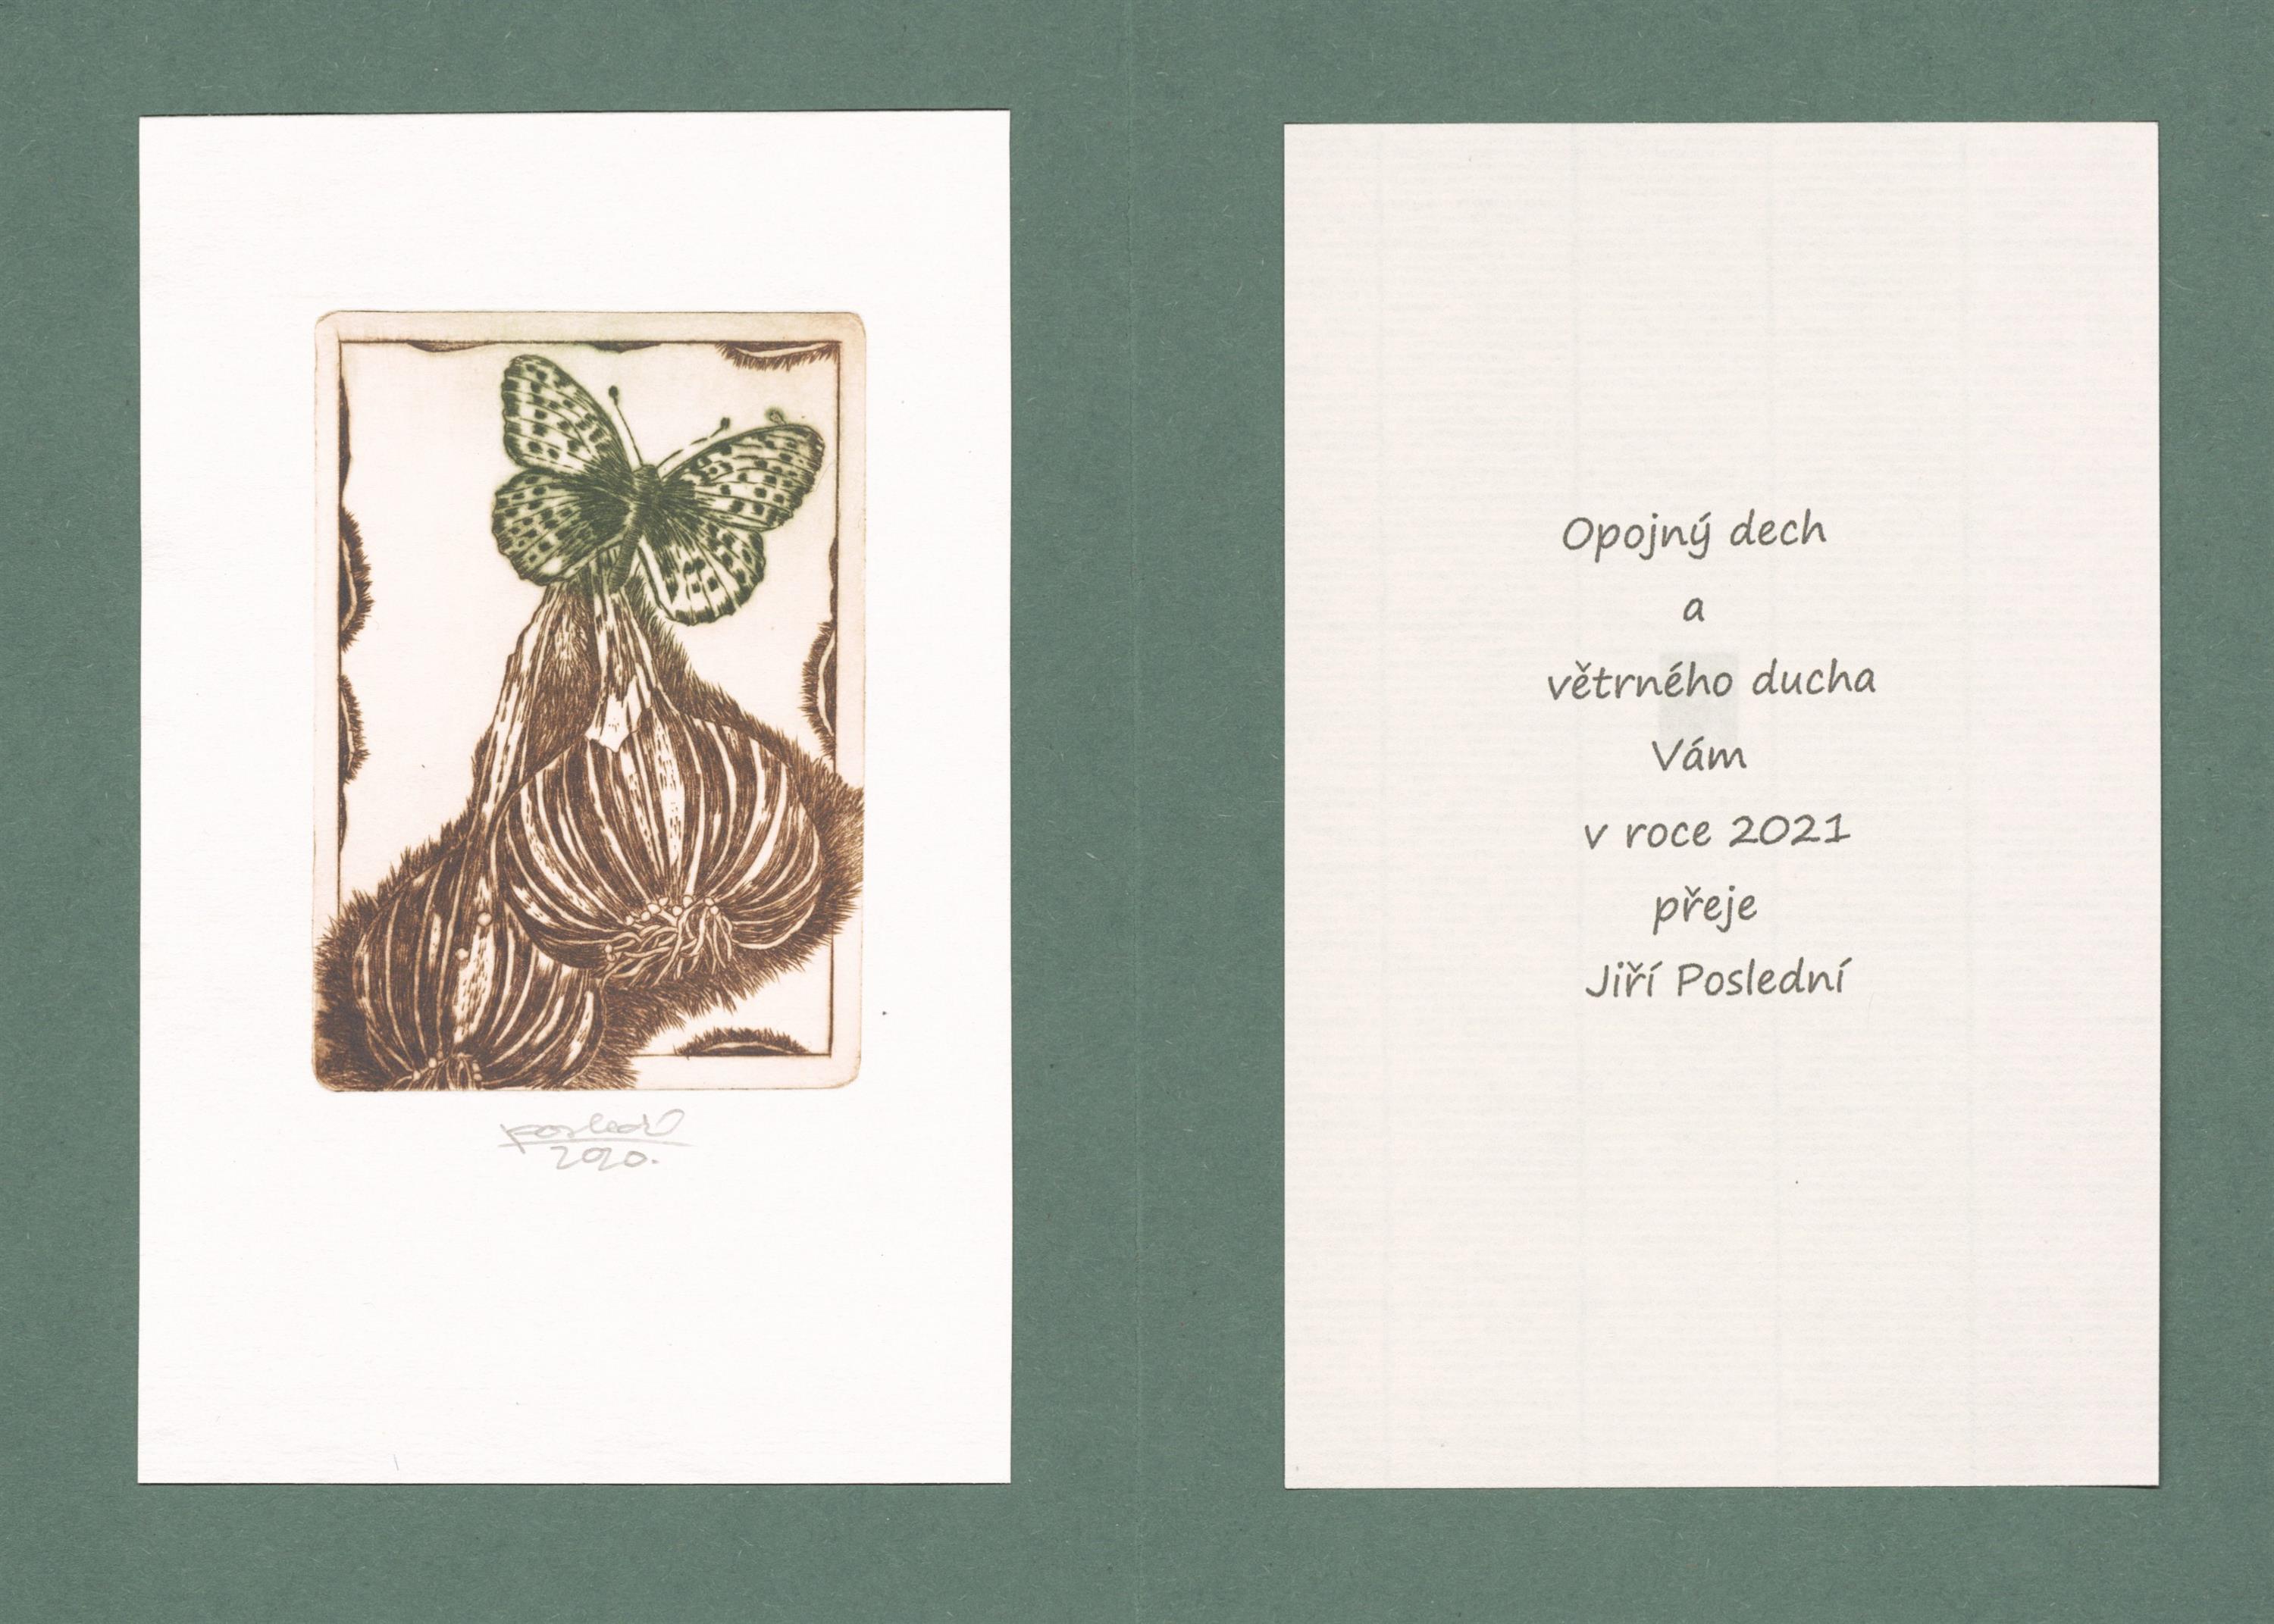 Poslední
2020.
Opojný dech
a
větrného ducha
Vám
v roce 2021
přeje
Jiří Poslední